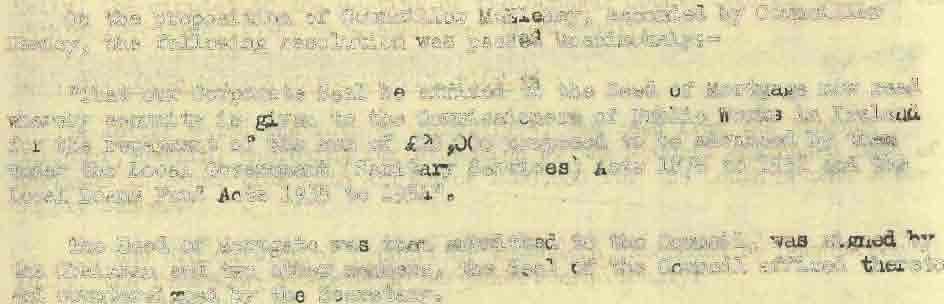 On the proposition of Councillor McAleavy, seconded by Councillor
the following resolution was passed unanimously:-
"That our Corporate Seal be affixed to the Deed of Mortgage now read
whereby security is given to the Commissioners of Public Works in Ireland
for the Repayment of the sum of proposed to be advanced by them
under the Local Government (Sanitary Services) Acts 1878 to and the
Local Loans Fund Acts 1935 to
The Deed of Mortgage was then submitted to the Council, was signed by
the Chairman and two other members, the Seal of the Council affixed thereto
and countersigned by the Secretary.